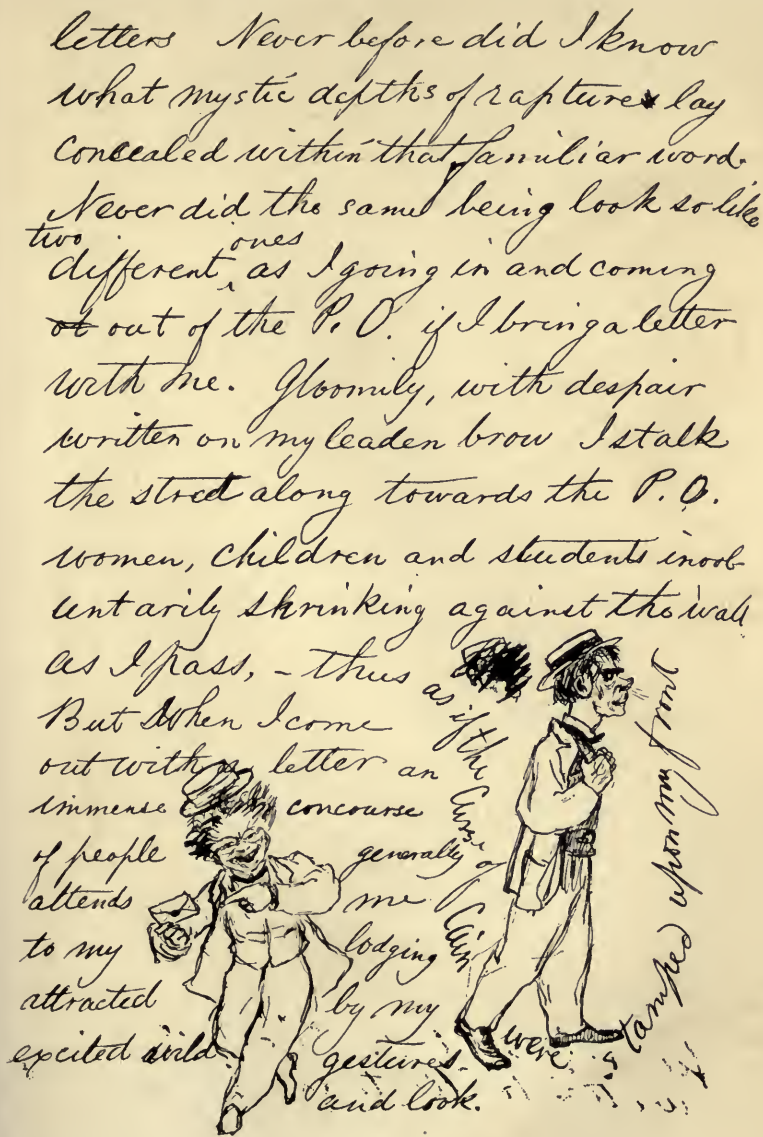 letters Never before did I know
what mystic depths of rapture lay
concealed within that familiar word.
Never did the same being look so like
two ones
different as I going in and coming
ot out of the P.O. if I bring a letter
with me. Gloomily, with despair
written on my leaden brow I stalk
the street along towards the P.O.
women, children and students invol-
untarily shrinking against the wall
as I pass, – thus
as if the curse of Cain were stamped upon my front
But when I come
out with a letter an
immense concourse
of people generally
attends me
to my lodging
attracted by my
excited wild gestures
and look.